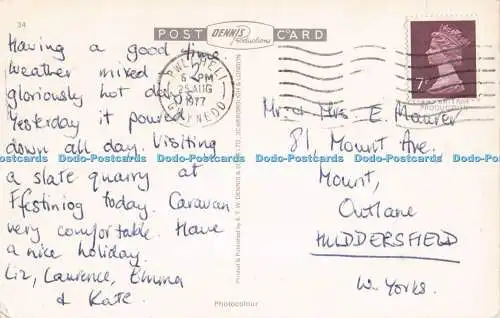 34
POST CARD
DENNIS
Productions
Having a good time
weather mixed -
gloriously hot day
Yesterday it poured
down all day. Visiting
a slate quarry at
Ffestiniog today. Caravan
very comfortable. Have
a nice holiday.
Liz, Laurence, Emma
& Kate.
PWLLHELI
6 PM
25 AUG
1977
GWYNEDD
7P
Mr & Mrs. E. Mawer
81, Mount Ave.
Mount,
Outlane
HUDDERSFIELD
W. Yorks.
Printed & Published by E. T. W. DENNIS & SONS LTD., SCARBOROUGH & LONDON
Photocolour
Dodo-Postcards Dodo-Postcards Dodo-Postcards Dodo-Postcards Dodo-Postcards Dodo-Postcards